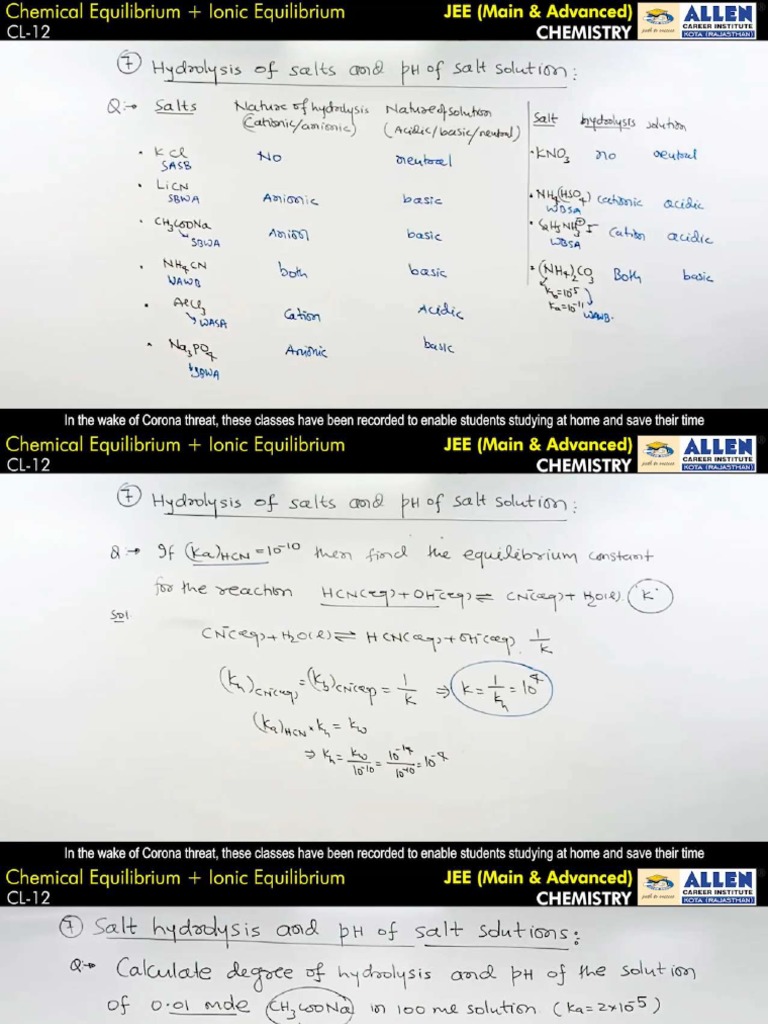 Chemical Equilibrium + Ionic Equilibrium
CL-12
JEE (Main & Advanced)
CHEMISTRY
ALLEN
CAREER INSTITUTE
KOTA (RAJASTHAN)
⑦ Hydrolysis of salts and pH of salt solution:
Q:→ Salts Nature of hydrolysis (Cationic/anionic) Nature of solution (Acidic/basic/neutral)
• KCl SASB No neutral
• LiCN SBWA Anionic basic
• CH3COONa SBWA Anion basic
• NH4CN WAWB both basic
• AlCl3 WASA Cation Acidic
• Na3PO4 SBWA Anionic basic
Salt hydrolysis solution
• KNO3 no neutral
• NH4(HSO4) WBSA cationic acidic
WBSA Cation acidic
• (NH4)2CO3 Both basic
Kb=10-5
Ka=10-11 WAWB.
In the wake of Corona threat, these classes have been recorded to enable students studying at home and save their time
Chemical Equilibrium + Ionic Equilibrium
CL-12
JEE (Main & Advanced)
CHEMISTRY
ALLEN
CAREER INSTITUTE
KOTA (RAJASTHAN)
⑦ Hydrolysis of salts and pH of salt solution:
Q:→ If (Ka)HCN = 10-10 then find the equilibrium constant
for the reaction HCN(aq)+OH-(aq) ⇌ CN-(aq)+H2O(l) K
Sol.
CN-(aq)+H2O(l) ⇌ HCN(aq)+OH-(aq) 1/K
(Kh)CN-(aq) = (Kb)CN-(aq) = 1/K ⇒ K = 1/Kh = 10^4
(Ka)HCN × Kh = Kw
⇒ Kh = Kw/10-10 = 10-14/10-10 = 10-4
In the wake of Corona threat, these classes have been recorded to enable students studying at home and save their time
Chemical Equilibrium + Ionic Equilibrium
CL-12
JEE (Main & Advanced)
CHEMISTRY
ALLEN
CAREER INSTITUTE
KOTA (RAJASTHAN)
⑦ Salt hydrolysis and pH of salt solutions:
Q:→ Calculate degree of hydrolysis and pH of the solution
of 0.01 mole CH3COONa in 100 ml solution. (Ka=2×10-5)